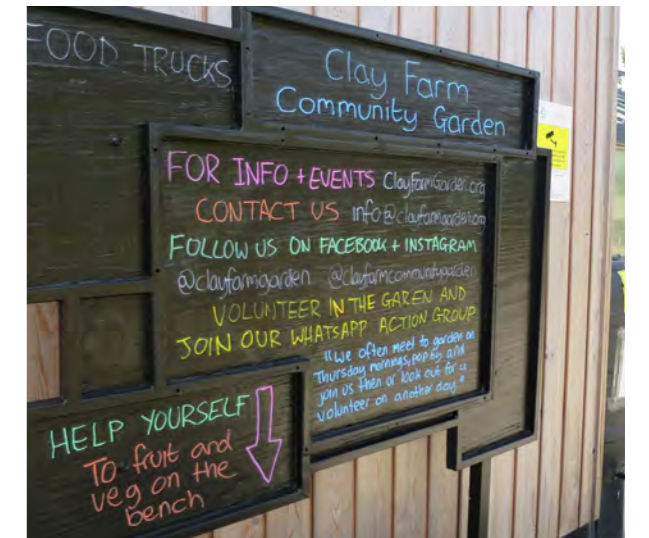 FOOD TRUCKS
Clay Farm
Community Garden
FOR INFO + EVENTS ClayFarmGarden.org
CONTACT US info@clayfarmgarden.org
FOLLOW US ON FACEBOOK + INSTAGRAM
@clayfarmgarden @clayfarmcommunitygarden
VOLUNTEER IN THE GAREN AND
JOIN OUR WHATSAPP ACTION GROUP
"We often meet to garden on
Thursday mornings, pop by and
join us then or look out for a
volunteer on another day."
HELP YOURSELF
To fruit and
veg on the
bench